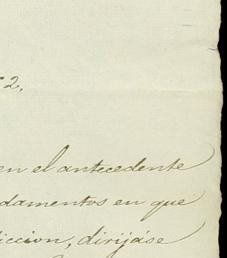 2.
en el antecedente
damentos en que
iccion, dirijáse